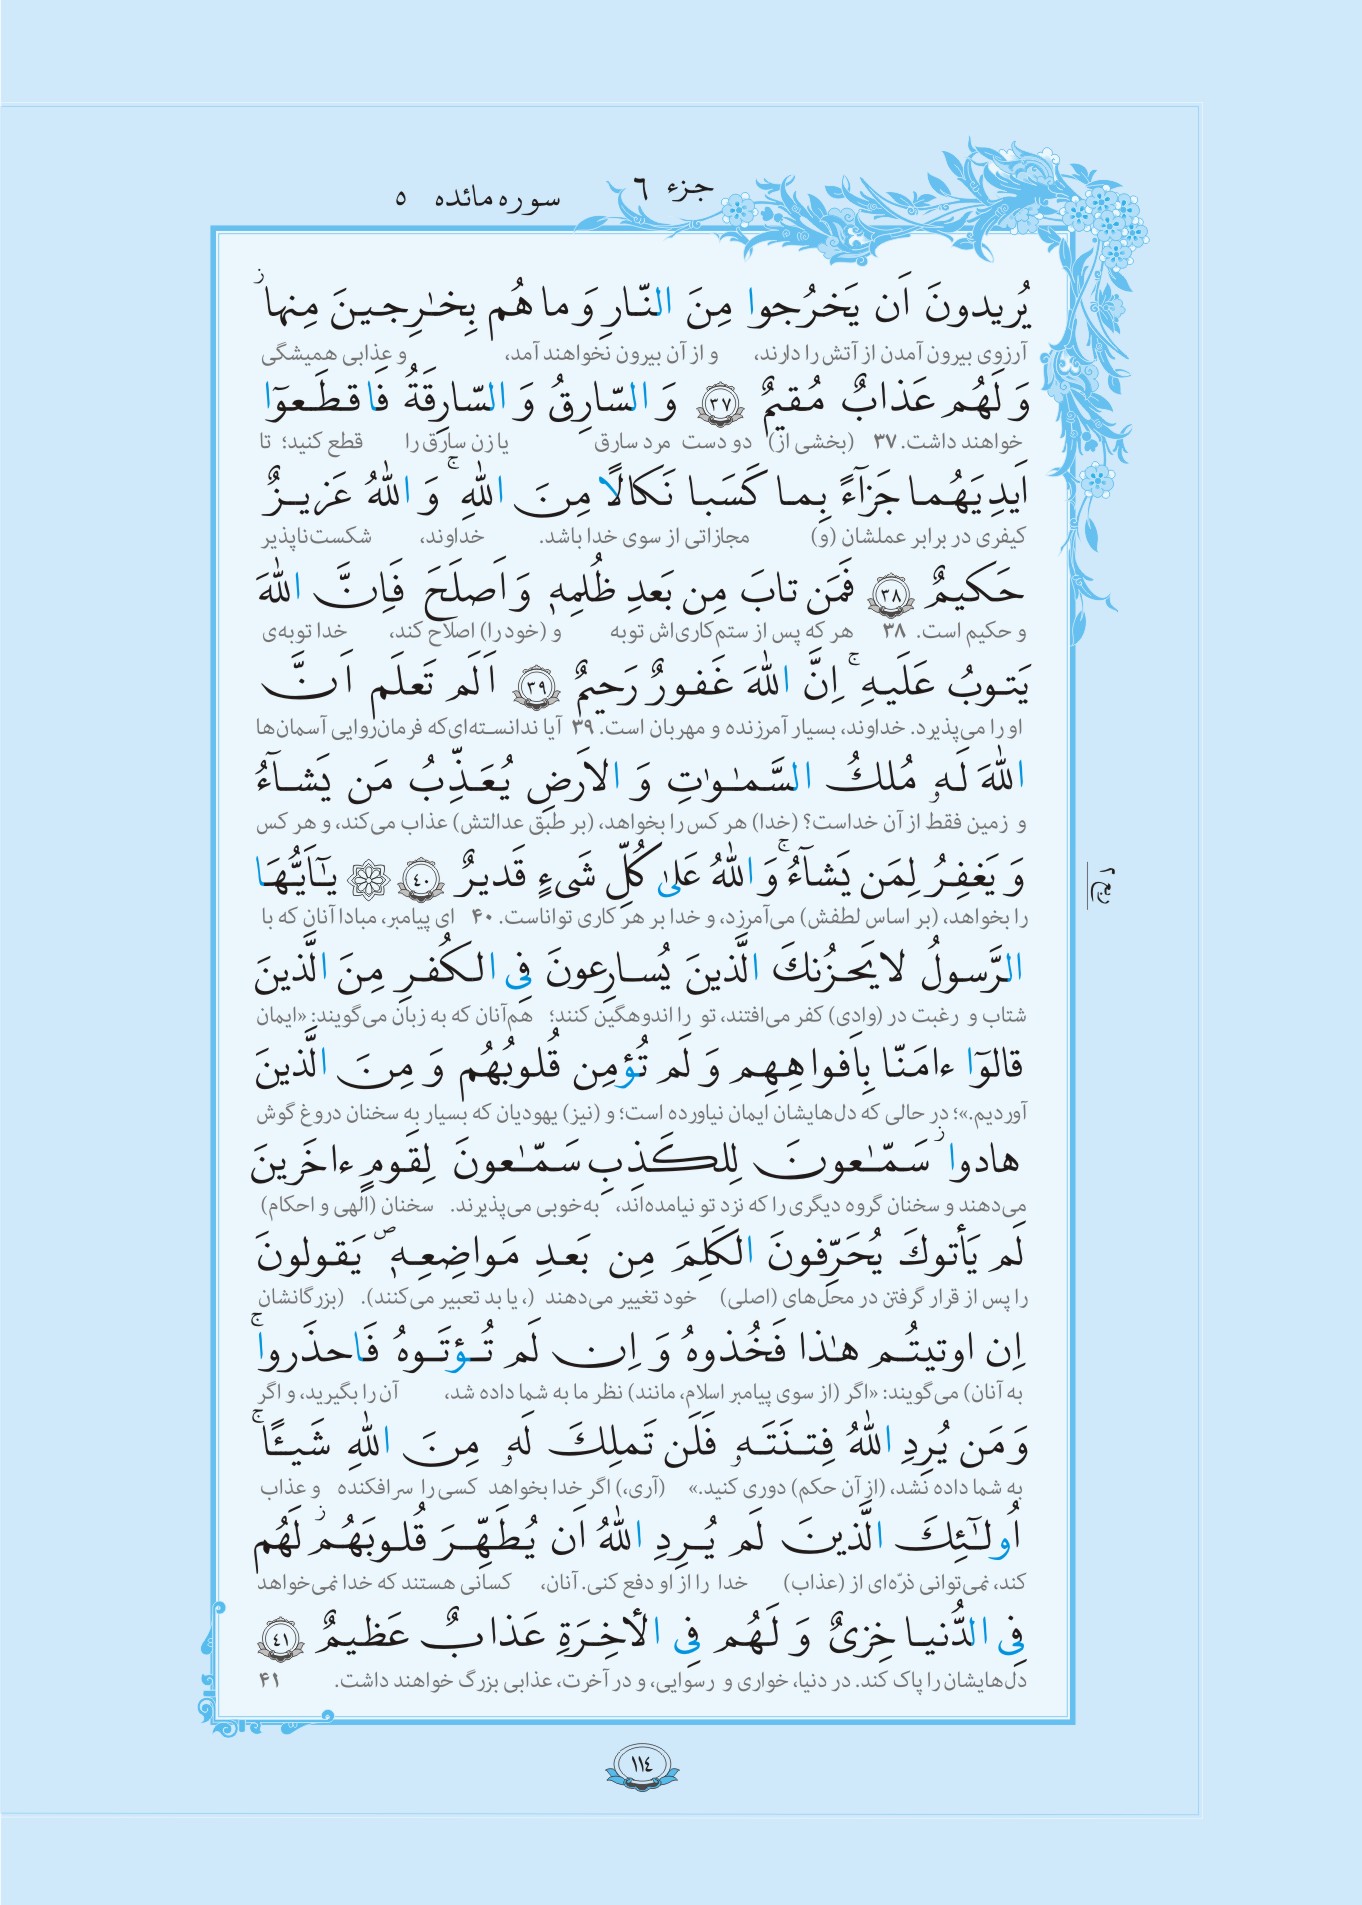 جزء ٦
سوره مائده ٥
يُريدونَ اَن يَخرُجوا مِنَ النّارِ وَ ما هُم بِخـٰرِجينَ مِنهاۖ
آرزوی بیرون آمدن از آتش را دارند، و از آن بیرون نخواهند آمد، و عذابی همیشگی
وَ لَهُم عَذابٌ مُقيمٌ ﴿٣٧﴾ وَ السّارِقُ وَ السّارِقَةُ فَاقطَعوٓا
خواهند داشت. ۳۷ (بخشی از) دو دست مرد سارق یا زن سارق را قطع کنید؛ تا
اَيدِيَهُما جَزآءً بِما كَسَبا نَكالًا مِنَ اللهِ ۚ وَ اللهُ عَزيزٌ
کیفری در برابر عملشان (و) مجازاتی از سوی خدا باشد. خداوند، شکست‌ناپذیر
حَكيمٌ ﴿٣٨﴾ فَمَن تابَ مِن بَعدِ ظُلمِهٖ وَ اَصلَحَ فَاِنَّ اللهَ
و حکیم است. ۳۸ هر که پس از ستم‌کاری‌اش توبه و (خود را) اصلاح کند، خدا توبه‌ی
يَتوبُ عَلَيهِ ۚ اِنَّ اللهَ غَفورٌ رَحيمٌ ﴿٣٩﴾ اَلَم تَعلَم اَنَّ
او را می‌پذیرد. خداوند، بسیار آمرزنده و مهربان است. ۳۹ آیا ندانسته‌ای که فرمان‌روایی آسمان‌ها
اللهَ لَهٗ مُلكُ السَّمـٰوٰتِ وَ الاَرضِ يُعَذِّبُ مَن يَشآءُ
و زمین فقط از آن خداست؟ (خدا) هر کس را بخواهد، (بر طبق عدالتش) عذاب می‌کند، و هر کس
وَ يَغفِرُ لِمَن يَشآءُ ۚ وَ اللهُ عَلىٰ كُلِّ شَیءٍ قَديرٌ ﴿٤٠﴾ ۞ يـٰٓاَيُّهَا
را بخواهد، (بر اساس لطفش) می‌آمرزد، و خدا بر هر کاری تواناست. ۴۰ ای پیامبر، مبادا آنان که با
ربع ٢
الرَّسولُ لا يَحزُنكَ الَّذينَ يُسارِعونَ فِی الكُفرِ مِنَ الَّذينَ
شتاب و رغبت در (وادی) کفر می‌افتند، تو را اندوهگین کنند؛ هم‌آنان که به زبان می‌گویند: «ایمان
قالوٓا ءامَنّا بِاَفواهِهِم وَ لَم تُؤمِن قُلوبُهُم وَ مِنَ الَّذينَ
آوردیم.»؛ در حالی که دل‌هایشان ایمان نیاورده است؛ و (نیز) یهودیان که بسیار به سخنان دروغ گوش
هادوا ۛ سَمّـٰعونَ لِلكَذِبِ سَمّـٰعونَ لِقَومٍ ءاخَرينَ
می‌دهند و سخنان گروه دیگری را که نزد تو نیامده‌اند، به‌خوبی می‌پذیرند. سخنان (الهی و احکام)
لَم يَأتوكَ يُحَرِّفونَ الكَلِمَ مِن بَعدِ مَواضِعِهٖ ۖ يَقولونَ
را پس از قرار گرفتن در محل‌های (اصلی) خود تغییر می‌دهند (، یا بد تعبیر می‌کنند). (بزرگانشان
اِن اوتيتُم هـٰذا فَخُذوهُ وَ اِن لَم تُؤتَوهُ فَاحذَروا ۚ
به آنان) می‌گویند: «اگر (از سوی پیامبر اسلام، مانند) نظر ما به شما داده شد، آن را بگیرید، و اگر
وَ مَن يُرِدِ اللهُ فِتنَتَهٗ فَلَن تَملِكَ لَهٗ مِنَ اللهِ شَيـًٔا ۚ
به شما داده نشد، (از آن حکم) دوری کنید.» (آری،) اگر خدا بخواهد کسی را سرافکنده و عذاب
اُولـٰٓئِكَ الَّذينَ لَم يُرِدِ اللهُ اَن يُطَهِّرَ قُلوبَهُم ۛ لَهُم
کند، نمی‌توانی ذرّه‌ای از (عذاب) خدا را از او دفع کنی. آنان، کسانی هستند که خدا نمی‌خواهد
فِی الدُّنيا خِزیٌ وَ لَهُم فِی الأخِرَةِ عَذابٌ عَظيمٌ ﴿٤١﴾
دل‌هایشان را پاک کند. در دنیا، خواری و رسوایی، و در آخرت، عذابی بزرگ خواهند داشت. ۴۱
١١٤